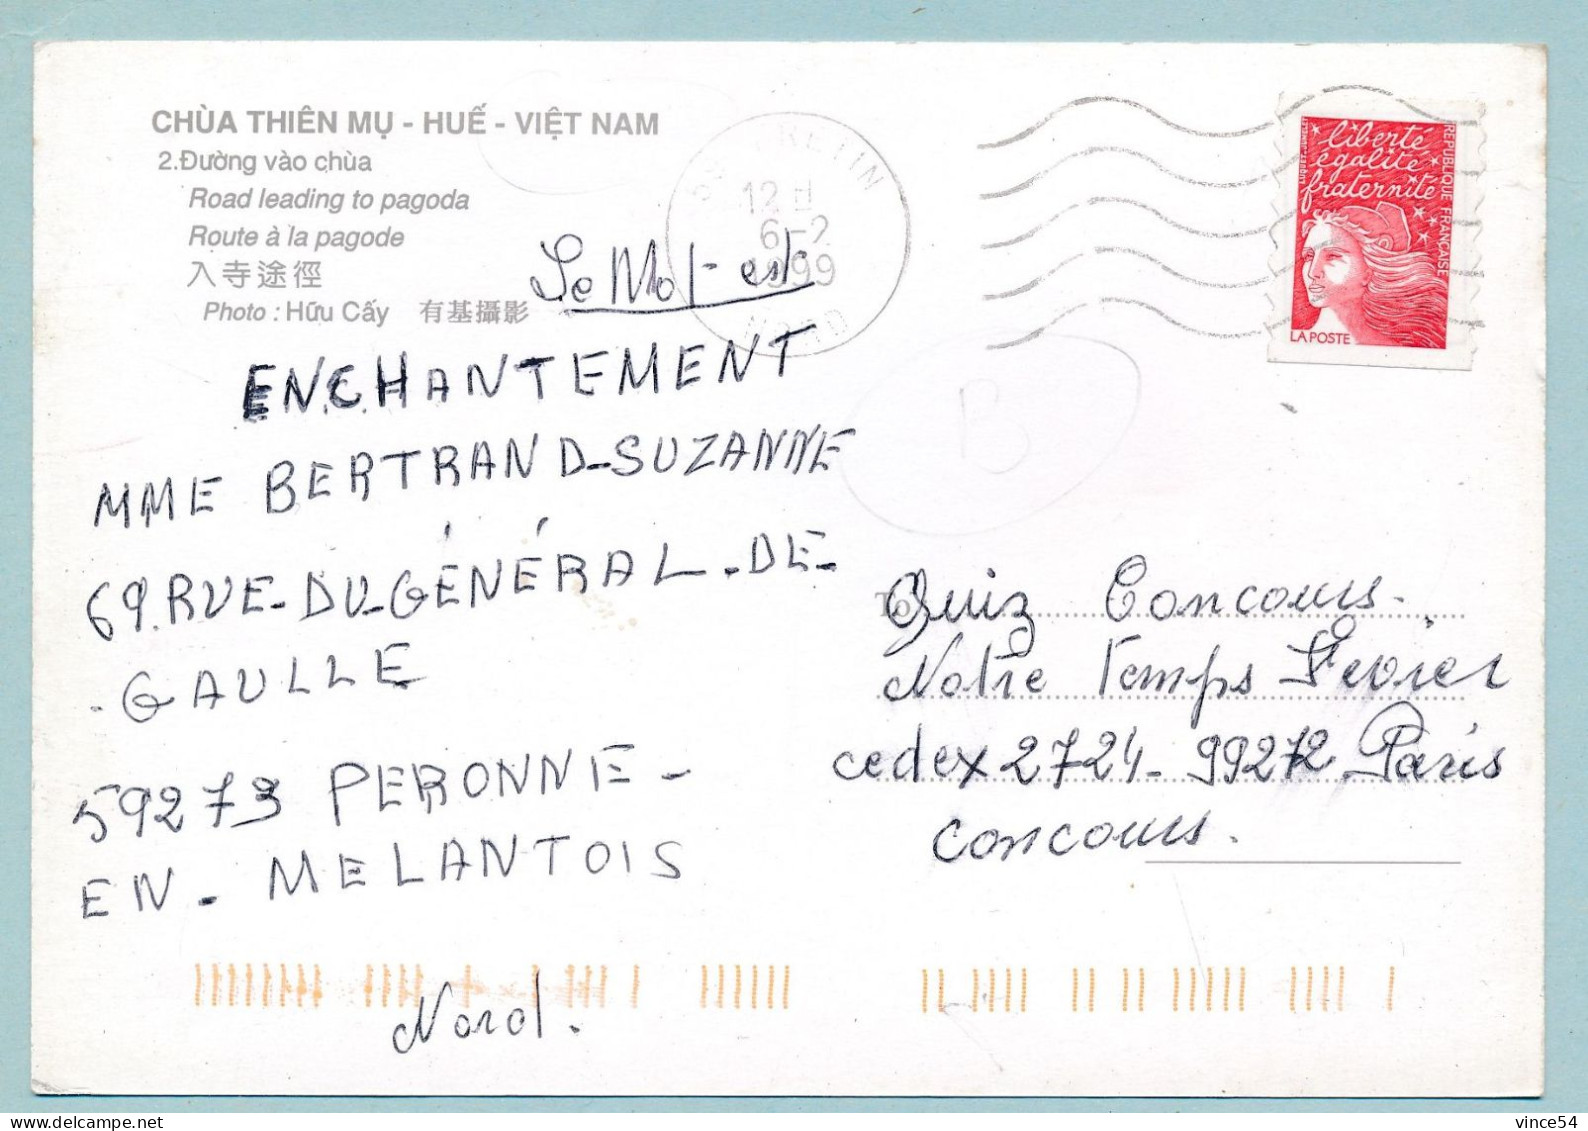 CHÙA THIÊN MỤ - HUẾ - VIỆT NAM
2.Đường vào chùa
Road leading to pagoda
Route à la pagode
入寺途徑
Photo : Hữu Cấy 有基攝影
12 H
6-2
1999
NORD
liberté
égalité
fraternité
RÉPUBLIQUE FRANÇAISE
LA POSTE
Le Mot est
ENCHANTEMENT
MME BERTRAND-SUZANNE
69.RUE-DU-GÉNÉRAL-DE-
-GAULLE
59273 PERONNE-
EN-MELANTOIS
Nord.
B
To
Quiz Concours.
Notre Temps Fevrier
cedex 2724-99272 Paris
concours.
vince54